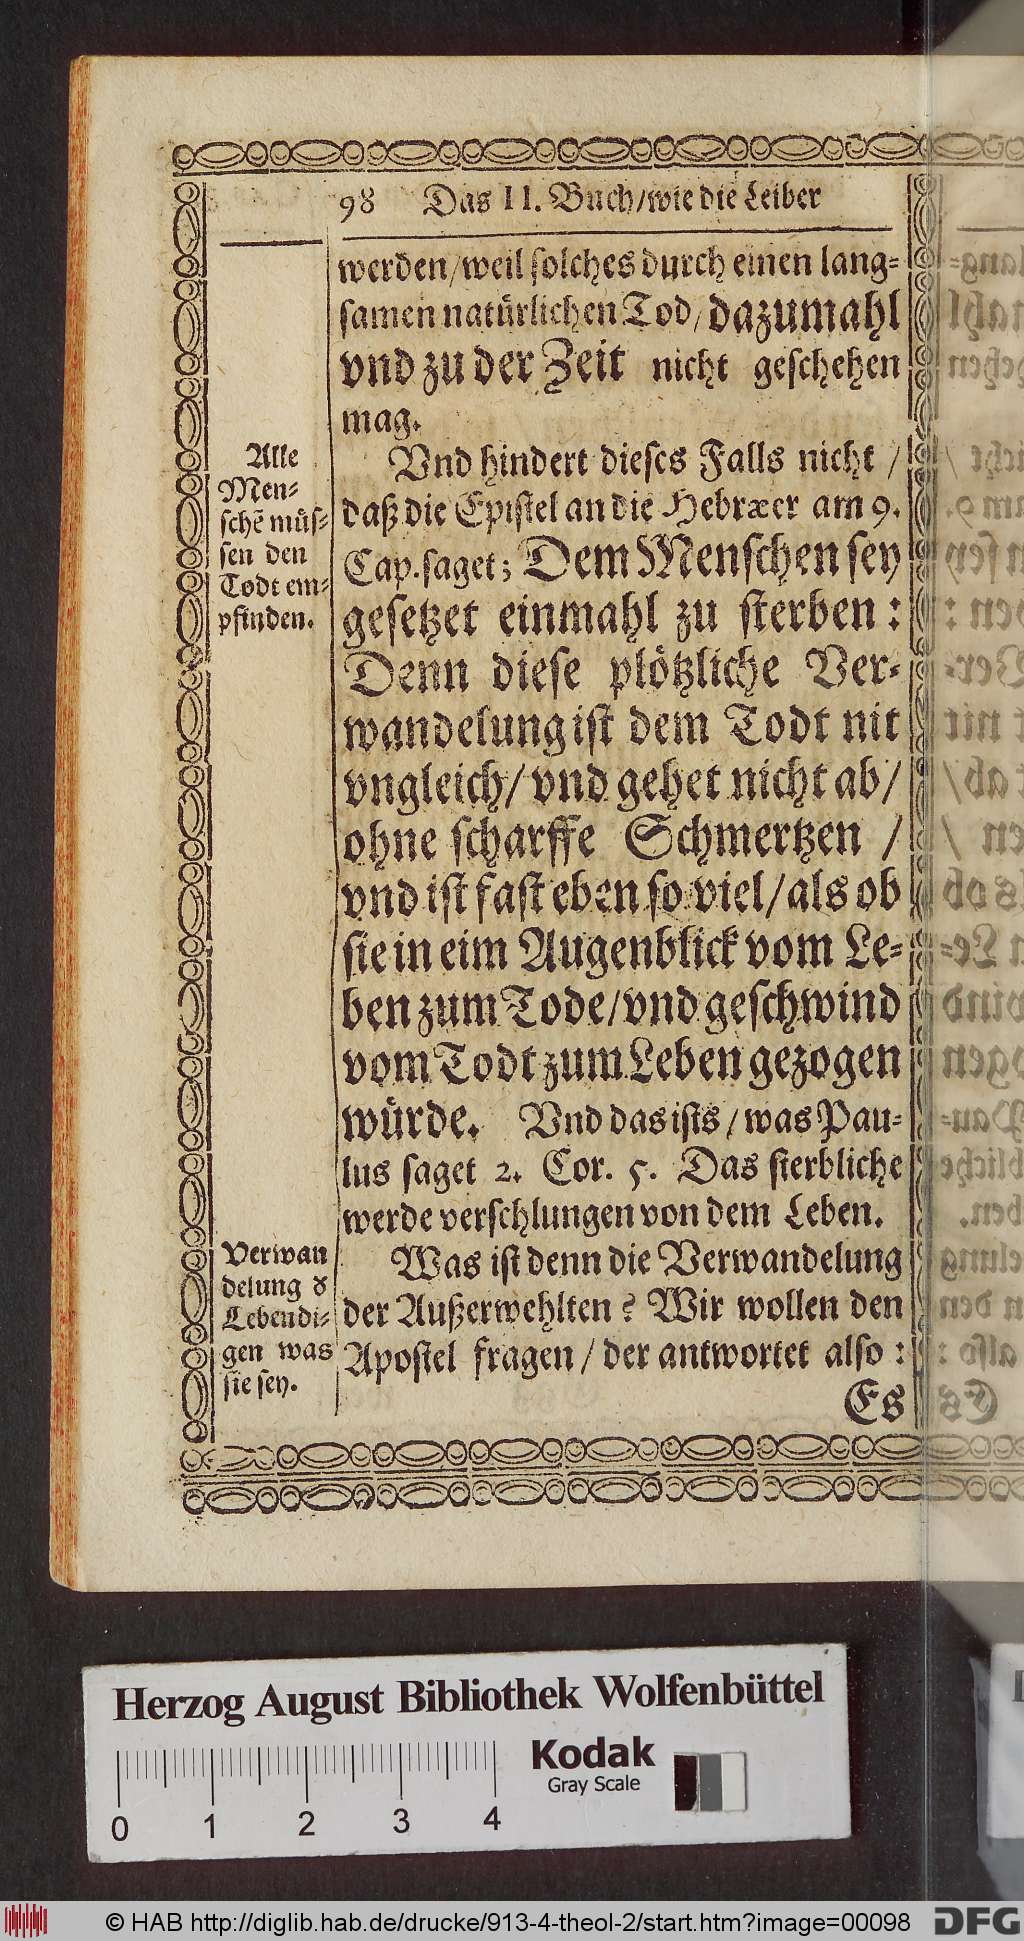 98 Das II. Buch/wie die Leiber
werden/weil solches durch einen lang-
samen natürlichen Tod/dazumahl
vnd zu der Zeit nicht geschehen
mag.
Alle
Men-
schē müs-
sen den
Todt em-
pfinden.
Vnd hindert dieses Falls nicht /
daß die Epistel an die Hebræer am 9.
Cap. saget; Dem Menschen sey
gesetzet einmahl zu sterben:
Denn diese plötzliche Ver-
wandelung ist dem Todt nit
vngleich/vnd gehet nicht ab/
ohne scharffe Schmertzen /
vnd ist fast eben so viel/als ob
sie in eim Augenblick vom Le-
ben zum Tode/vnd geschwind
vom Todt zum Leben gezogen
würde. Vnd das ists/was Pau-
lus saget 2. Cor. 5. Das sterbliche
werde verschlungen von dem Leben.
Verwan
delung d
Lebendi-
gen was
sie sey.
Was ist denn die Verwandelung
der Außerwehlten? Wir wollen den
Apostel fragen/der antwortet also:
Es
Herzog August Bibliothek Wolfenbüttel
Kodak
Gray Scale
0 1 2 3 4
© HAB http://diglib.hab.de/drucke/913-4-theol-2/start.htm?image=00098
DFG